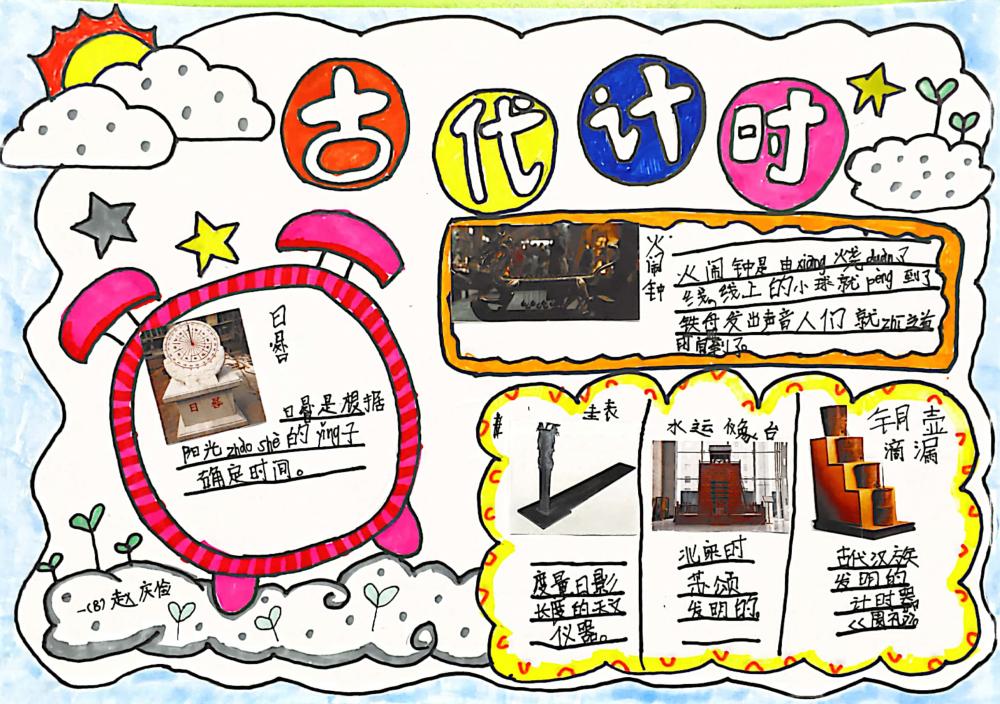 古代计时
火闹钟
火闹钟是由xiāng烧duàn了
线,线上的小球就pèng到了
铁母发出声音人们就zhī道
时间到了。
日晷
日晷
日晷是根据
阳光zhào shè的yǐng子
确定时间。
圭表
度量日影
长度的天文
仪器。
水运仪象台
北宋时
苏颂
发明的
铜壶
滴漏
古代汉族
发明的
计时器
一(8)赵庆俭